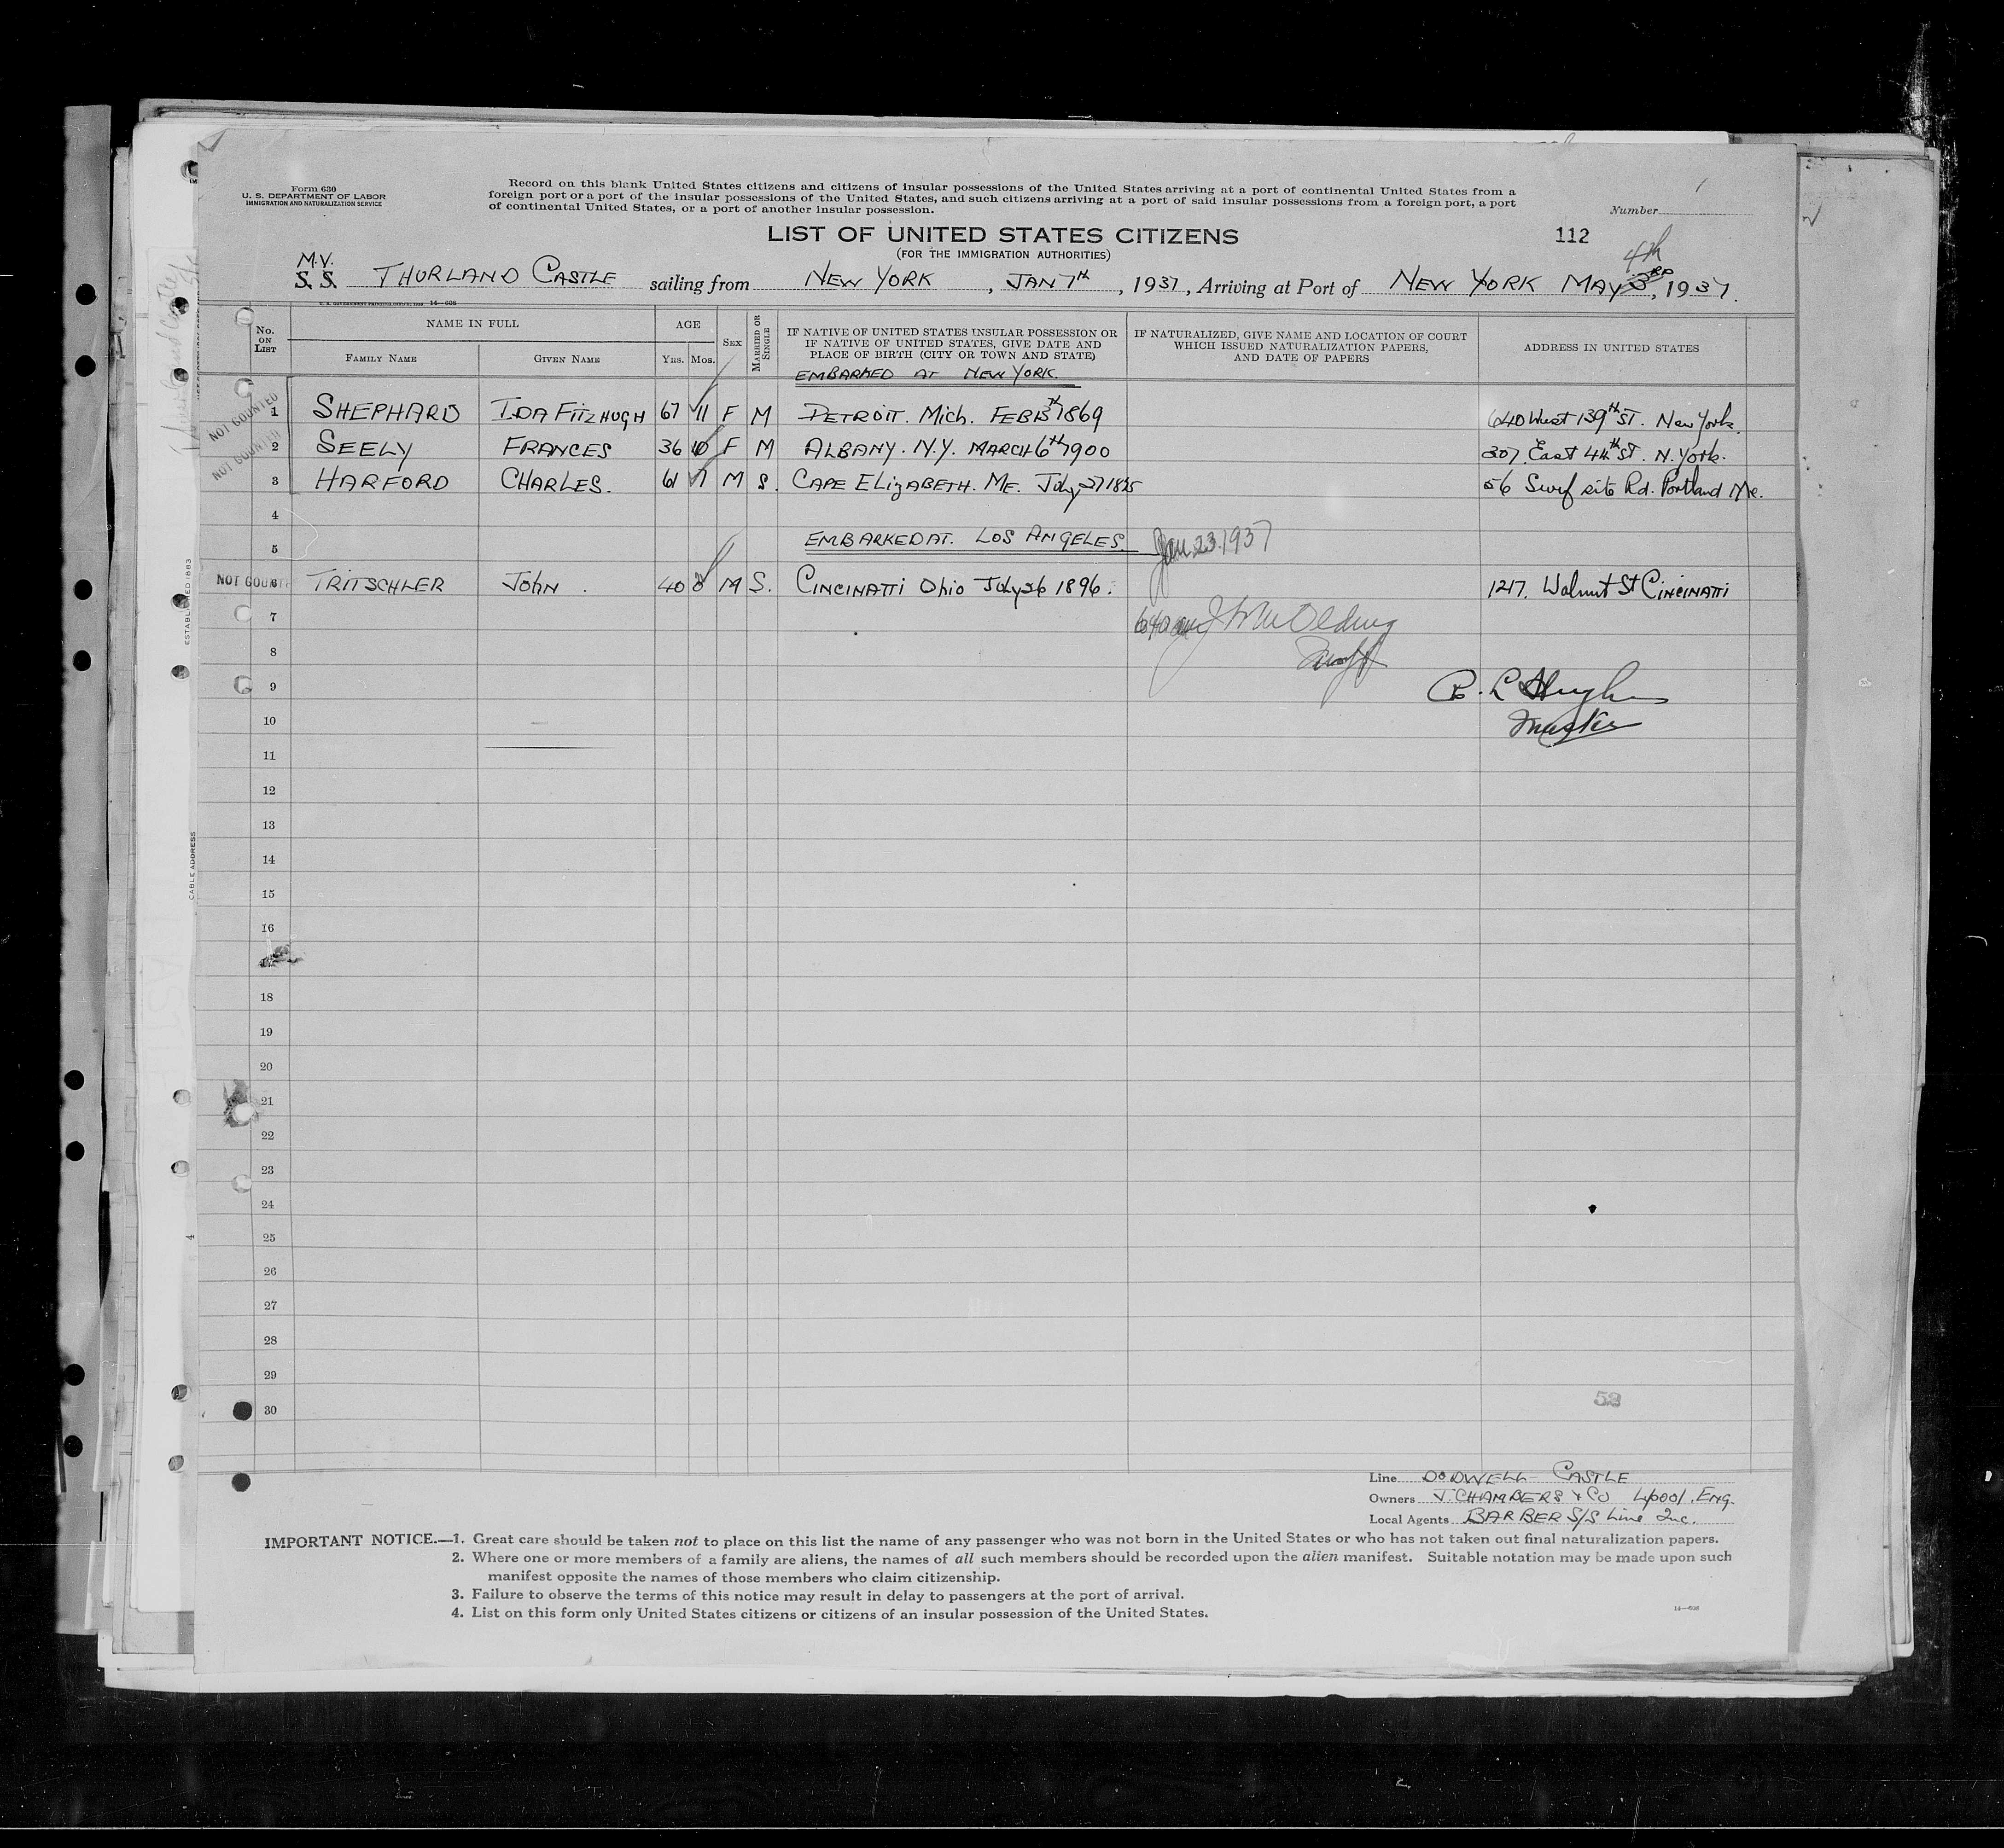 Form 630
U. S. DEPARTMENT OF LABOR
IMMIGRATION AND NATURALIZATION SERVICE
Record on this blank United States citizens and citizens of insular possessions of the United States arriving at a port of continental United States from a
foreign port or a port of the insular possessions of the United States, and such citizens arriving at a port of said insular possessions from a foreign port, a port
of continental United States, or a port of another insular possession.
Number
LIST OF UNITED STATES CITIZENS
112
(FOR THE IMMIGRATION AUTHORITIES)
4th
M.V.
S. S. THURLAND CASTLE sailing from NEW YORK, JAN 7th, 1937, Arriving at Port of NEW YORK MAY 3RD, 1937.
U. S. GOVERNMENT PRINTING OFFICE 14—608
No. ON LIST
NAME IN FULL
FAMILY NAME
GIVEN NAME
AGE
YRS. MOS.
SEX
MARRIED OR SINGLE
IF NATIVE OF UNITED STATES INSULAR POSSESSION OR
IF NATIVE OF UNITED STATES, GIVE DATE AND
PLACE OF BIRTH (CITY OR TOWN AND STATE)
IF NATURALIZED, GIVE NAME AND LOCATION OF COURT
WHICH ISSUED NATURALIZATION PAPERS,
AND DATE OF PAPERS
ADDRESS IN UNITED STATES
EMBARKED AT NEW YORK.
NOT COUNTED
1 SHEPHARD IDA FITZHUGH 67 11 F M DETROIT. Mich. FEB 13th 1869 640 West 139th ST. New York.
NOT COUNTED
2 SEELY FRANCES 36 10 F M ALBANY. N.Y. MARCH 6th 1900 307. East 4th ST. N. York.
3 HARFORD CHARLES. 61 M S. CAPE ELIZABETH. ME. July 56 Surf site Rd. Portland Me.
4
5 EMBARKED AT. LOS ANGELES. Jan. 23. 1937
NOT COUNT
6 TRITSCHLER JOHN. 40 M S. CINCINATTI Ohio July 26 1896. 1217. Walnut St CINCINATTI
7
8
9
10
11
12
13
14
15
16
18
19
20
21
22
23
24
25
26
27
28
29
30
52
Line DODWELL - CASTLE
Owners J. CHAMBERS & CO L'pool. ENG.
Local Agents BARBER S/S Line Inc.
IMPORTANT NOTICE.—1. Great care should be taken not to place on this list the name of any passenger who was not born in the United States or who has not taken out final naturalization papers.
2. Where one or more members of a family are aliens, the names of all such members should be recorded upon the alien manifest. Suitable notation may be made upon such
manifest opposite the names of those members who claim citizenship.
3. Failure to observe the terms of this notice may result in delay to passengers at the port of arrival.
4. List on this form only United States citizens or citizens of an insular possession of the United States.
14—608
ESTABLISHED 1883
CABLE ADDRESS